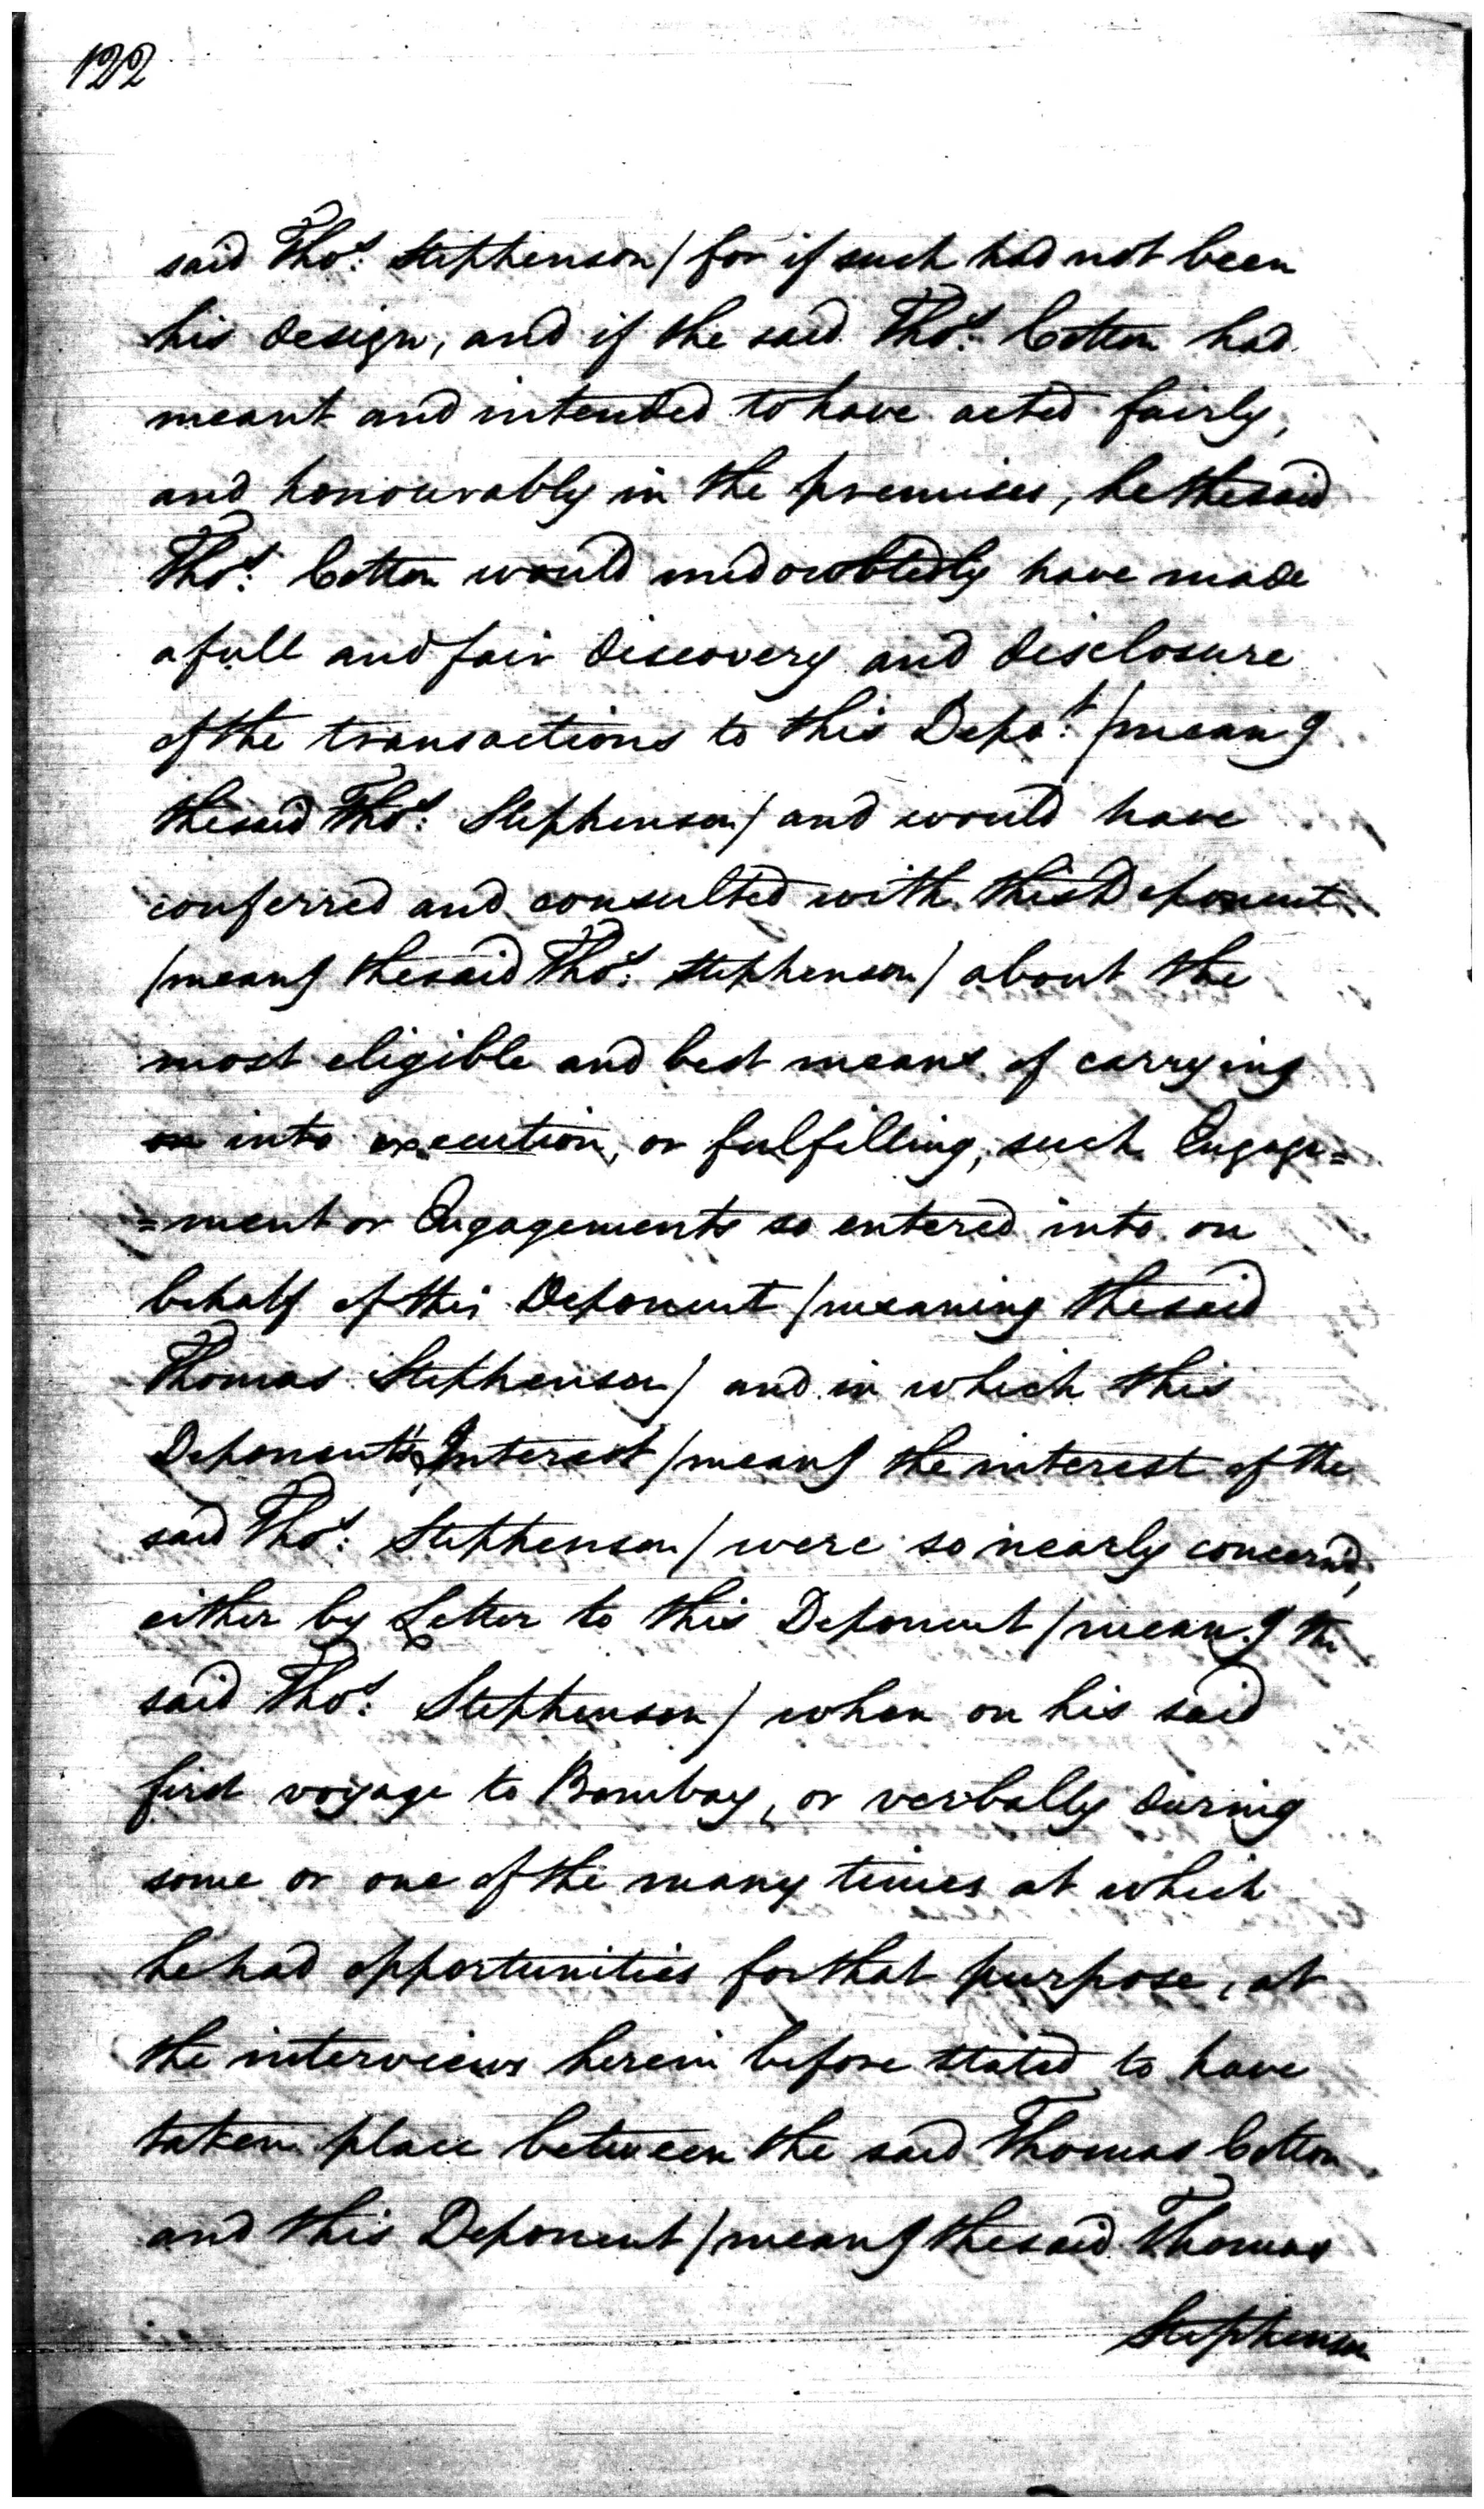 122
said Thos: Stephenson/ for if such had not been
his design, and if the said Thos: Cotton had
meant and intended to have acted fairly,
and honourably in the premises, he the said
Thos: Cotton would undoubtedly have made
a full and fair discovery and disclosure
of the transactions to this Depot: /meang
the said Thos: Stephenson/ and would have
conferred and consulted with this Deponent
/meang the said Thos: Stephenson/ about the
most eligible and best means of carrying
on into execution, or fulfilling, such Engage=
=ment or Engagements so entered into on
behalf of this Deponent /meaning the said
Thomas Stephenson/ and in which this
Deponents Interest /meang the interest of the
said Thos: Stephenson/ were so nearly concernd,
either by Letter to this Deponent /meang the
said Thos: Stephenson/ when on his said
first voyage to Bombay, or verbally during
some or one of the many times at which
he had opportunities for that purpose, at
the interviews herein before stated to have
taken place between the said Thomas Cotton
and this Deponent /meang the said Thomas
Stephenson